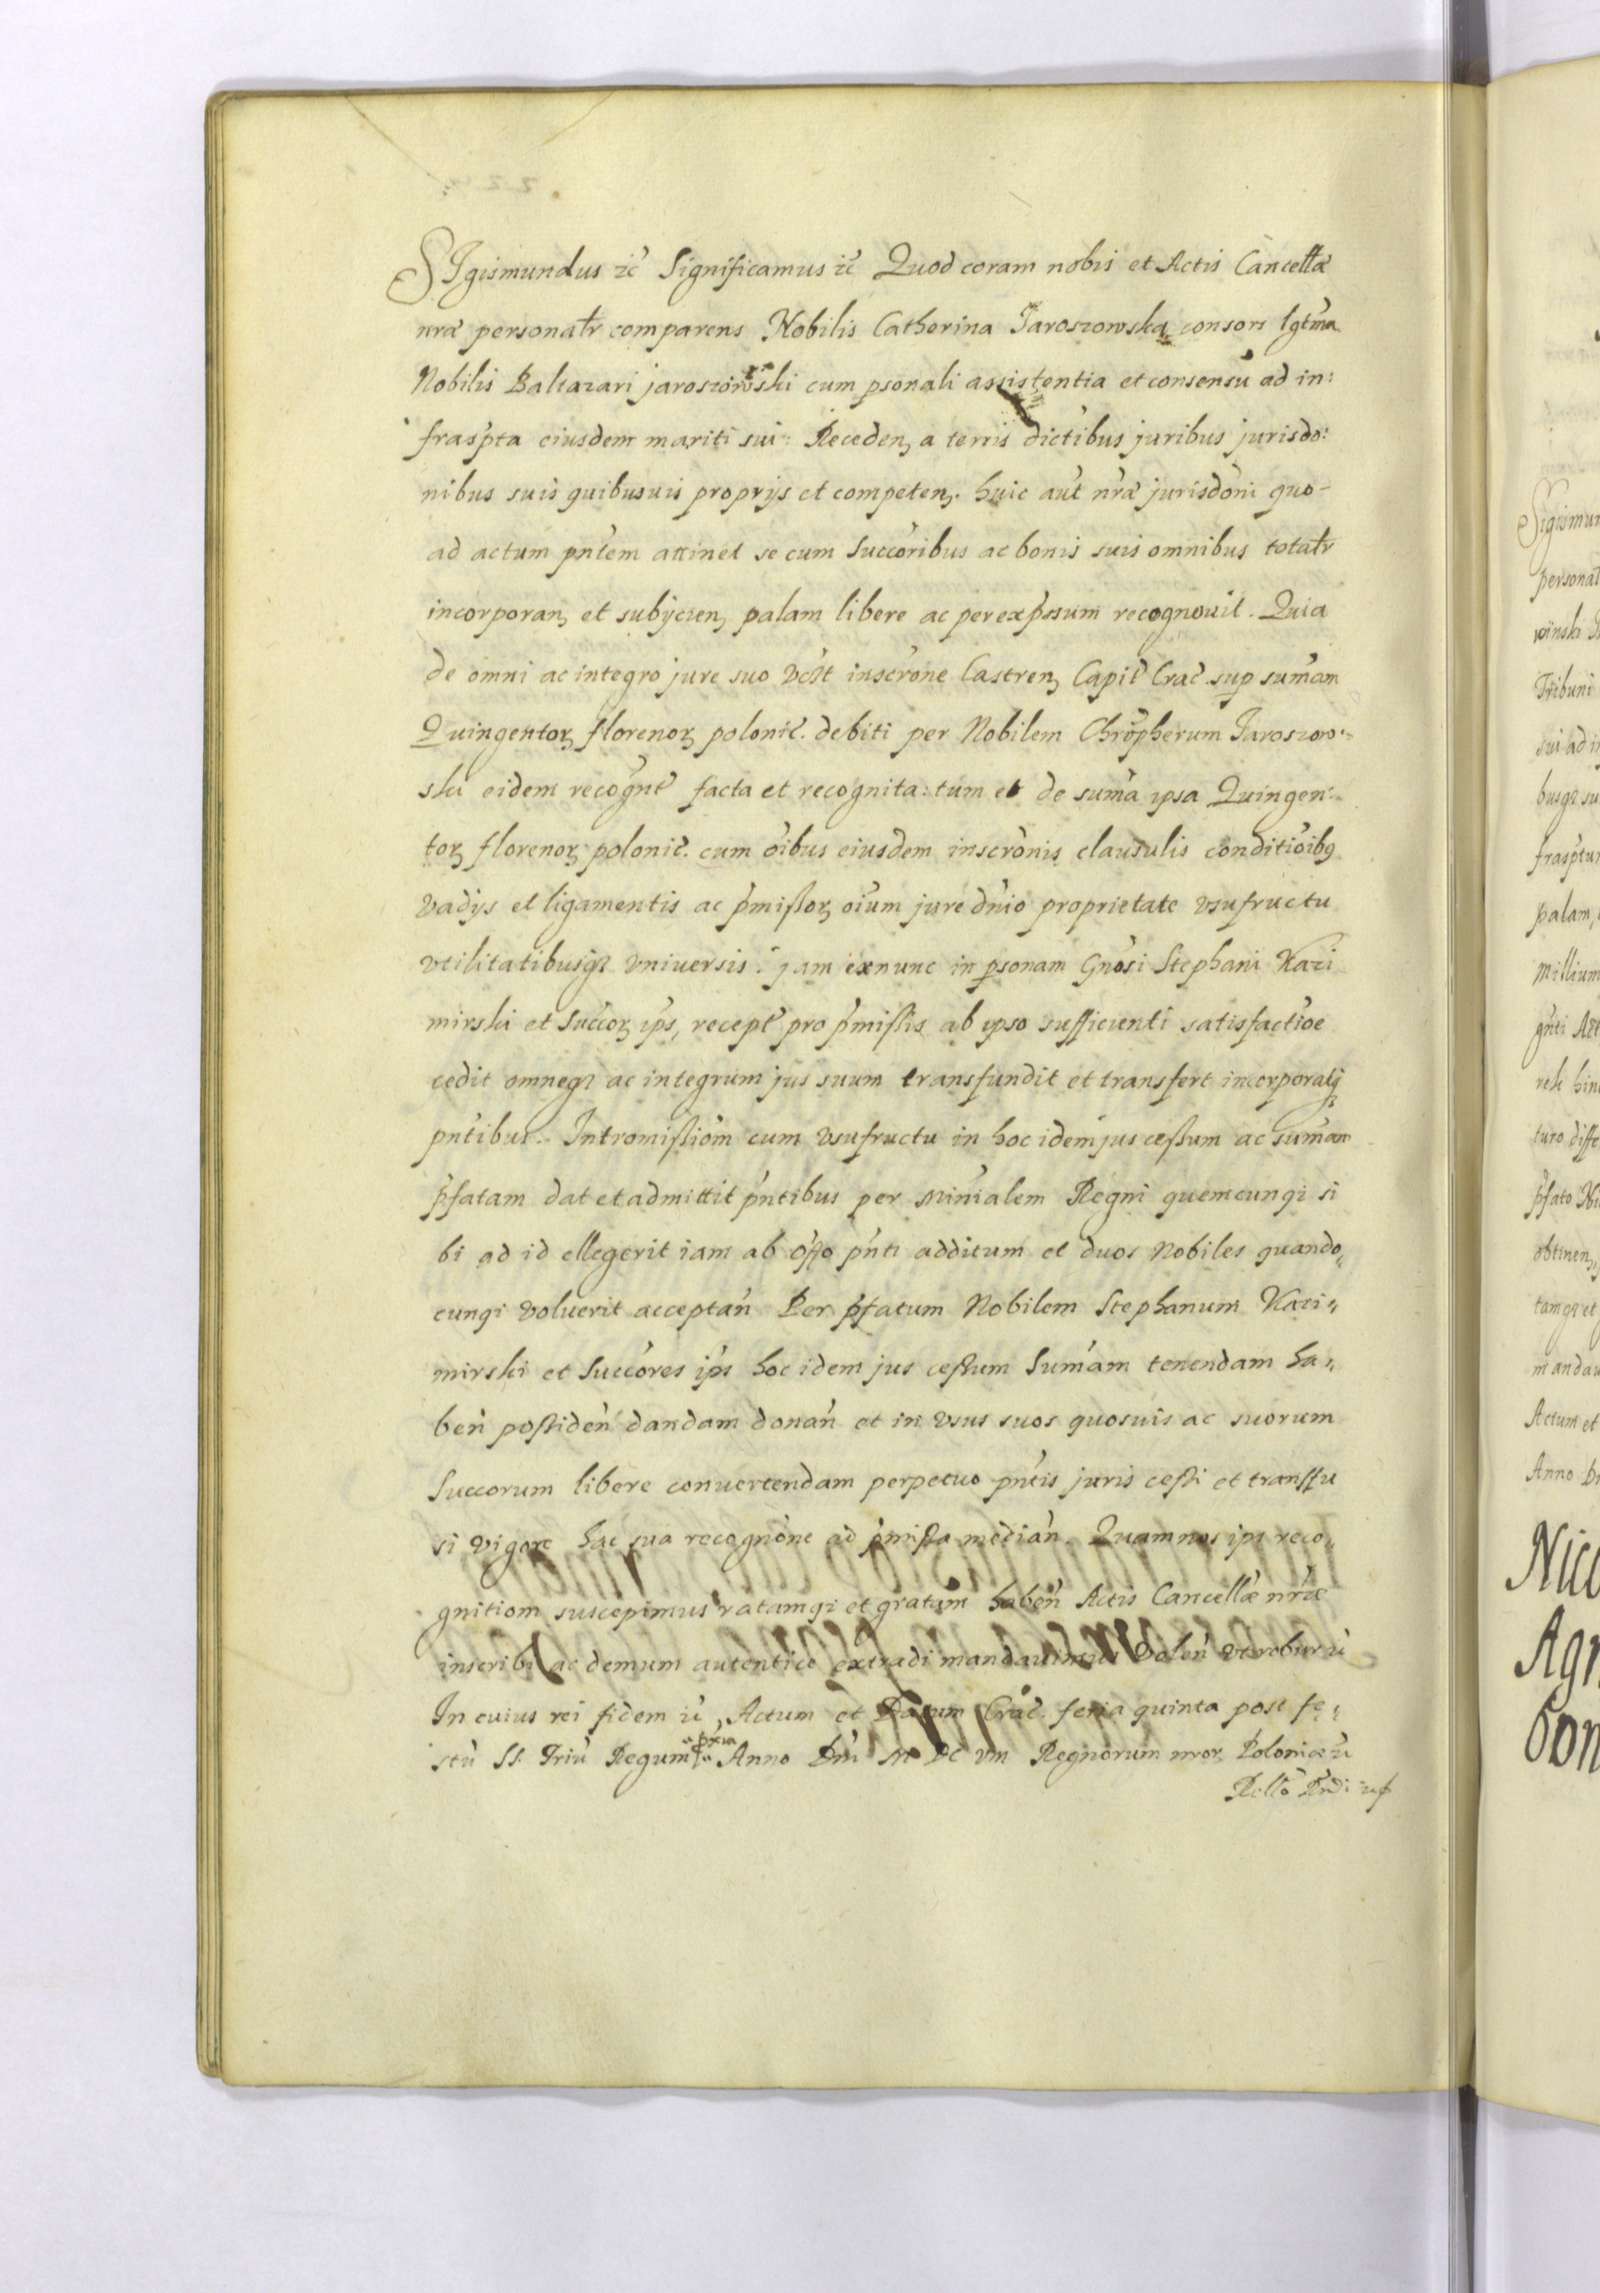 SIgismundus etc̃ Significamus etc̃ Quod coram nobis et Actis Cancellæ
nræ personalr comparens Nobilis Catherina Jaroszowska consors lgtma
Nobilis Baltazari jaroszowski cum psonali assistentia et consensu ad in:
fraspta eiusdem mariti sui: Receden, a terris dictibus juribus jurisdo:
nibus suis quibusuis proprijs et competen, huic aut nræ jurisdoni quo-
ad actum pntem attinet se cum Succoribus ac bonis suis omnibus totalr
incorporan, et subijcien, palam libere ac per expssum recognouit. Quia
de omni ac integro jure suo inscrone Castren, Capit Crac. sup sumam
Quingentor, florenor, polonic. debiti per Nobilem Chropherum Jaroszow-
ski eidem recognt facta et recognita: tum et de suma ipsa Quingen:
tor, florenor, polonic. cum oibus eiusdem inscronis clausulis conditioibq
vadijs et ligamentis ac pmissor, oium jure dnio proprietate vsufructu
vtilitatibusq vniuersis: jam exnunc in psonam Gnosi Stephani Kazi
mirski et Succor, ips, recept pro pmissis ab ipso sufficienti satisfactioe
cedit omneq ac integrum jus suum transfundit et transfert incorporatq
pntibus. Intromissiom cum vsufructu in hoc idem jus cessum ac sumam
pfatam dat et admittit pntibus per Minialem Regni quemcunqi si
bi ad id ellegerit iam ab offo pnti additum et duos Nobiles quando,,
cunqi voluerit acceptan Per pfatum Nobilem Stephanum Kazi,,
mirski et Succores ips hoc idem jus cessum Sumam tenendam ha,,
ben possiden dandam donan et in vsus suos quosuis ac suorum
Succorum libere conuertendam perpetuo pntis juris cessi et transfu
si vigore hac sua recognone ad pmissa median. Quam nos ips reco,,
gnitiom suscepimus ratamqi et gratam haben Actis Cancellæ nræ
inscribi ac demum autentice extradi mandauimus
In cuius rei fidem etc̃, Actum et Datum Crac. feria quinta post fe:
stu SS. Triu Regum pxia Anno Dni M DC VIII Regnorum nror, Poloniæ etc̃